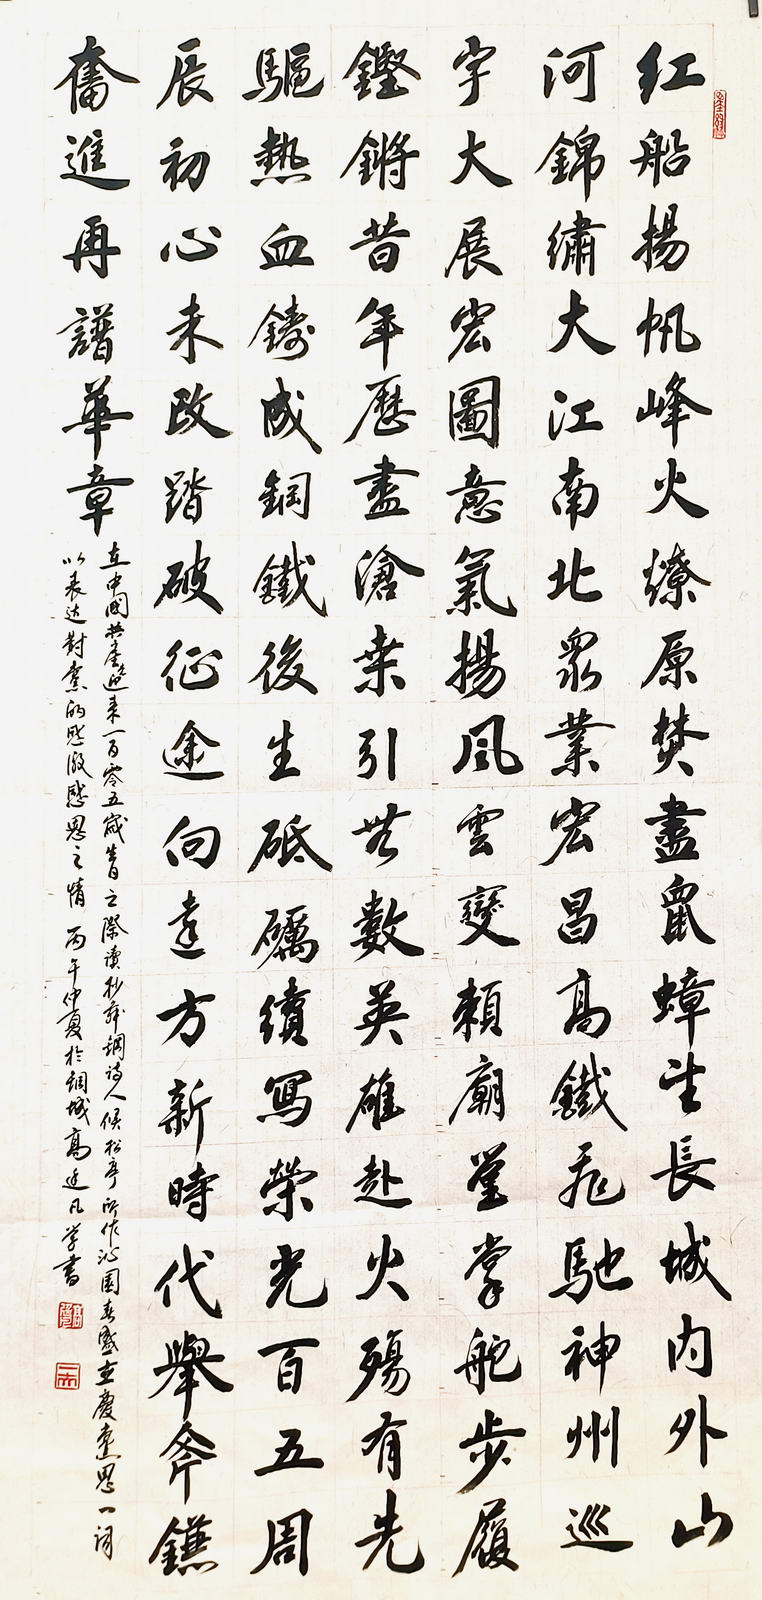 红船揚帆峰火燎原焚盡鼠蟑望長城内外山
河錦繡大江南北衆業宏昌高鐵飛馳神州巡
宇大展宏圖意氣揚風雲變賴廟堂掌舵步履
鏗鏘昔年歷盡滄桑引無數英雄赴火殤有先
驅熱血鑄成鋼鐵後生砥礪續寫榮光百五周
辰初心未改踏破征途向遠方新時代舉斧鐮
奮進再譜華章
在中國共產迎来一百零五歲生日之際讀抄舞鋼诗人候松亭所作沁園春盛世慶黨恩一词
以表达對黨的感激感恩之情 丙午仲夏於鋼城高延凡学書